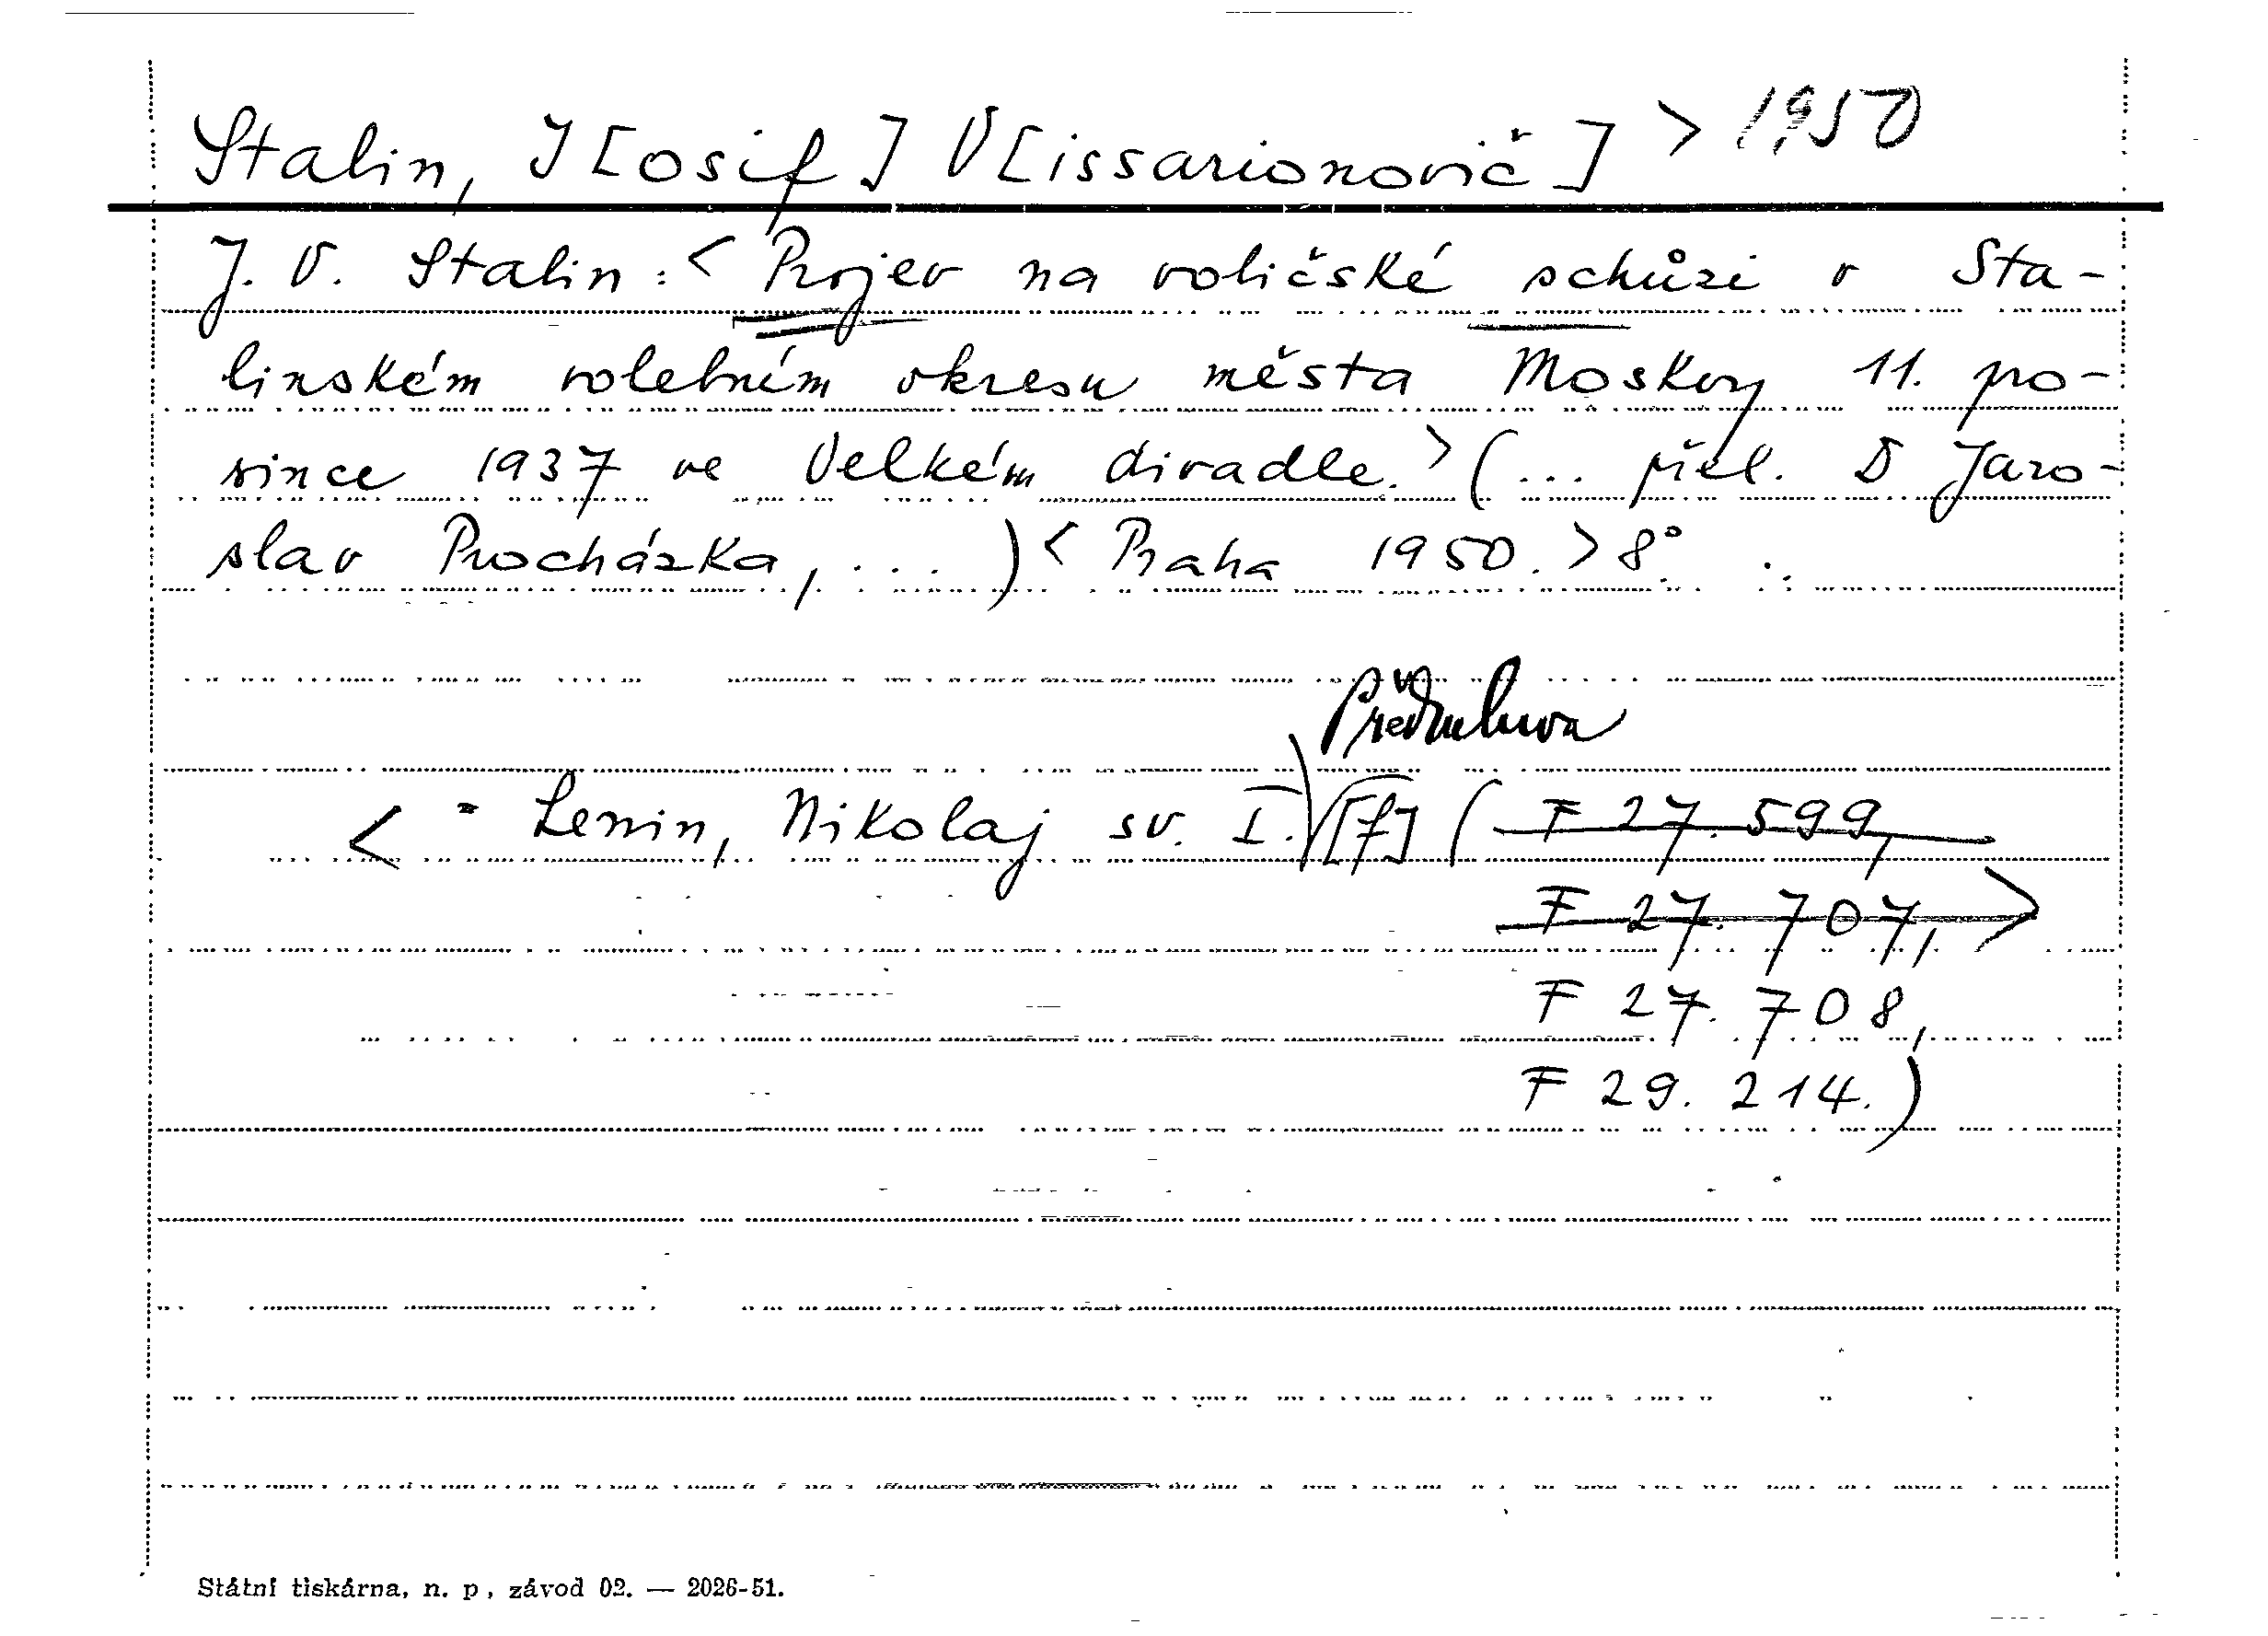 Stalin, J[osif] V[issarionovič] > 1950
J. V. Stalin: < Projev na voličské schůzi v Sta-
linském volebním okresu města Moskvy 11. pro-
since 1937 ve Velkém divadle. > (... přel. D Jaro-
slav Procházka, ...) < Praha 1950. > 8°.
Předmluva
< = Lenin, Nikolaj sv. I. [f] ( F 27.599,
F 27.707, >
F 27.708,
F 29.214.)
Státní tiskárna, n. p., závod 02. — 2026-51.